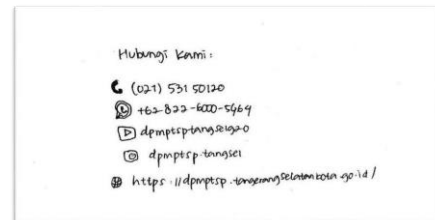 Hubungi Kami:
(021) 531 50120
+62-822-6000-5464
dpmptsp.tangsel
https://dpmptsp.tangerangselatankota.go.id/